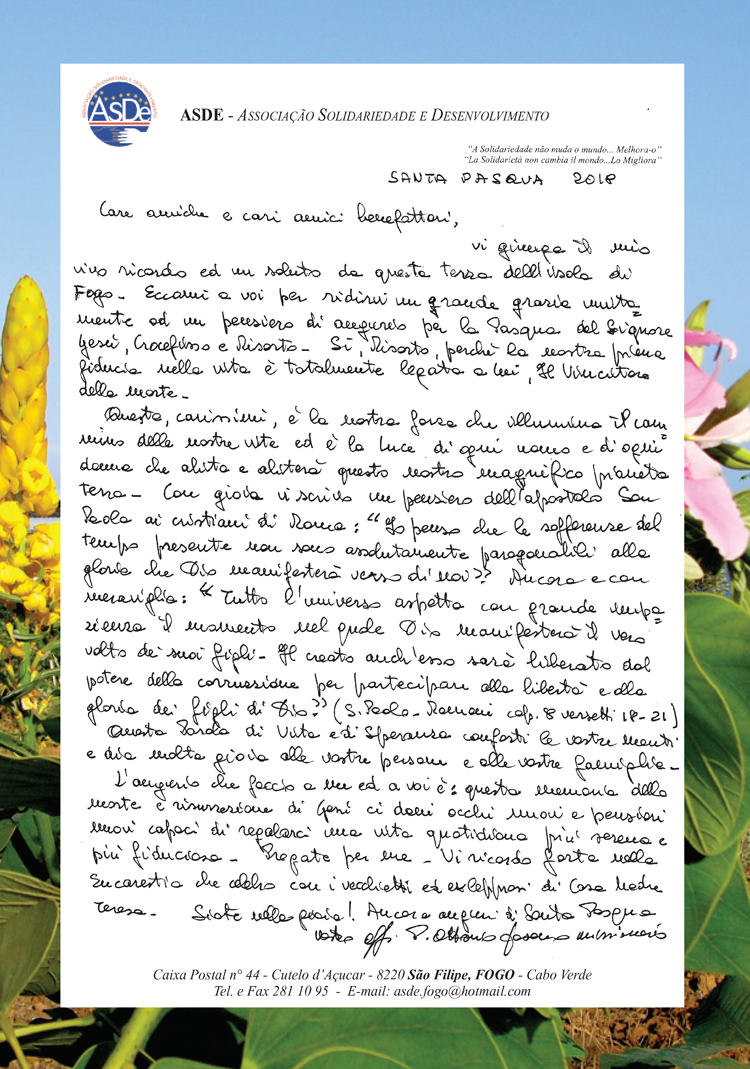 ASSOCIAÇÃO SOLIDARIEDADE E DESENVOLVIMENTO
AsDe
ASDE - ASSOCIAÇÃO SOLIDARIEDADE E DESENVOLVIMENTO
"A Solidariedade não muda o mundo... Melhora-o"
"La Solidarietà non cambia il mondo...Lo Migliora"
SANTA PASQUA 2018
Care amiche e cari amici benefattori,
vi giunga il mio
vivo ricordo ed un saluto da questa terra dell'isola di
Fogo - Eccomi a voi per ridirvi un grande grazie unita=
mente ad un pensiero di augurio per la Pasqua del Signore
Gesù, Crocefisso e Risorto - Sì, Risorto, perché la nostra piena
fiducia nella vita è totalmente legata a Lui, Il Vincitore
della morte -
Questa, carissimi, è la nostra forza che illumina il cam=
mino delle nostre vite ed è la Luce di ogni uomo e di ogni
donna che abita e abiterà questo nostro magnifico pianeta
terra - Con gioia vi scrivo un pensiero dell'apostolo San
Paolo ai cristiani di Roma: "Io penso che le sofferenze del
tempo presente non sono assolutamente paragonabili alla
gloria che Dio manifesterà verso di noi" Ancora e con
meraviglia: "Tutto l'universo aspetta con grande impa=
zienza il momento nel quale Dio manifesterà il vero
volto dei suoi figli - Il creato anch'esso sarà liberato dal
potere della corruzione per partecipare alla libertà e alla
gloria dei figli di Dio" (S. Paolo - Romani cap. 8 versetti 18-21)
Questa Parola di Vita e di Speranza conforti le vostre menti
e dia molta gioia alle vostre persone e alle vostre famiglie -
L'augurio che faccio a me ed a voi è: questa memoria della
morte e risurrezione di Gesù ci doni occhi nuovi e pensieri
nuovi capaci di regalarci una vita quotidiana più serena e
più fiduciosa - Pregate per me - Vi ricordo forte nella
Eucarestia che celebro con i vecchietti ed ex lebbrosi di Casa Madre
Teresa - Siate nella gioia! Ancora auguri di Santa Pasqua
vostro aff. P. Ottavio Fasano missionario
Caixa Postal n° 44 - Cutelo d'Açucar - 8220 São Filipe, FOGO - Cabo Verde
Tel. e Fax 281 10 95 - E-mail: asde.fogo@hotmail.com